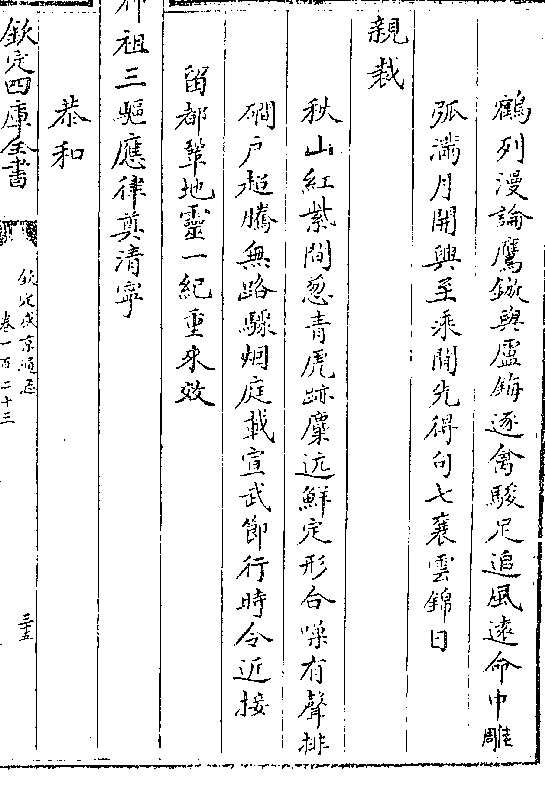 鶴列漫論鷹鏃與盧鋂逐禽駿足追風速命中雕
弧滿月開興至乘閒先得句七襄雲錦日
親裁
秋山紅紫間葱青虎跡麋远鮮定形合噪有聲排
磵户超騰無路驟烟庭載宣武節行時令近接
留都輦地靈一紀重來效
神祖三驅應律奠清寧
恭和
欽定四庫全書
欽定盛京通志
卷一百二十三
三十五